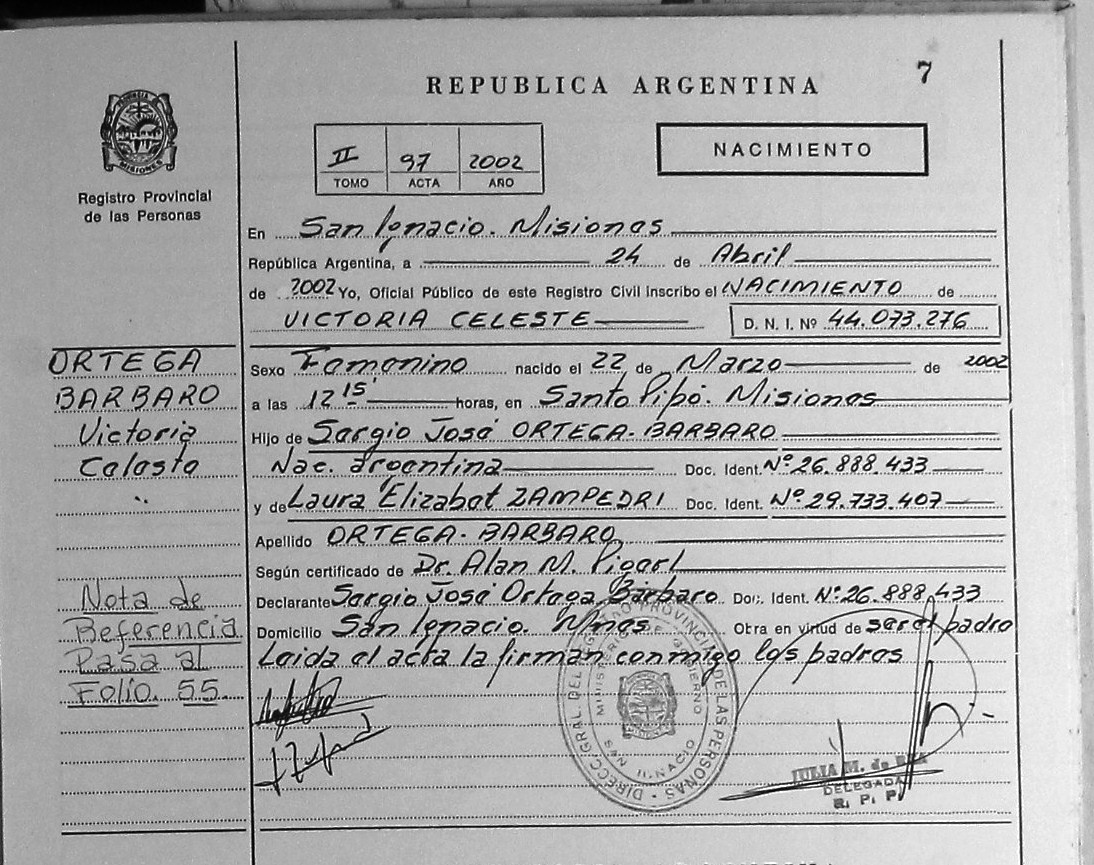 7
REPUBLICA ARGENTINA
PROVINCIA DE MISIONES
Registro Provincial
de las Personas
II 97 2002
TOMO ACTA AÑO
NACIMIENTO
En San Ignacio. Misiones
República Argentina, a 24 de Abril
de 2002 Yo, Oficial Público de este Registro Civil inscribo el NACIMIENTO de
VICTORIA CELESTE D. N. I. Nº 44.073.276
ORTEGA
BARBARO
Victoria
Celeste
Sexo Femenino nacido el 22 de Marzo de 2002
a las 12 15' horas, en Santo Pipó. Misiones
Hijo de Sergio José ORTEGA-BARBARO
Nac. argentina Doc. Ident. Nº 26.888.433
y de Laura Elizabet ZAMPEDRI Doc. Ident. Nº 29.733.407
Apellido ORTEGA-BARBARO
Según certificado de Dr. Alan M.
Declarante Sergio José Ortega Bárbaro Doc. Ident. Nº 26.888.433
Domicilio San Ignacio. Mnes. Obra en virtud de ser el padre
Leida el acta la firman conmigo los padres
Nota de
Referencia
Pasa al
Folio. 55.
DIRECC. GRAL. DEL REGISTRO PROVINCIAL DE LAS PERSONAS
MINISTERIO DE GOBIERNO
SAN IGNACIO
JULIA M. de
DELEGADA
R. P. P.